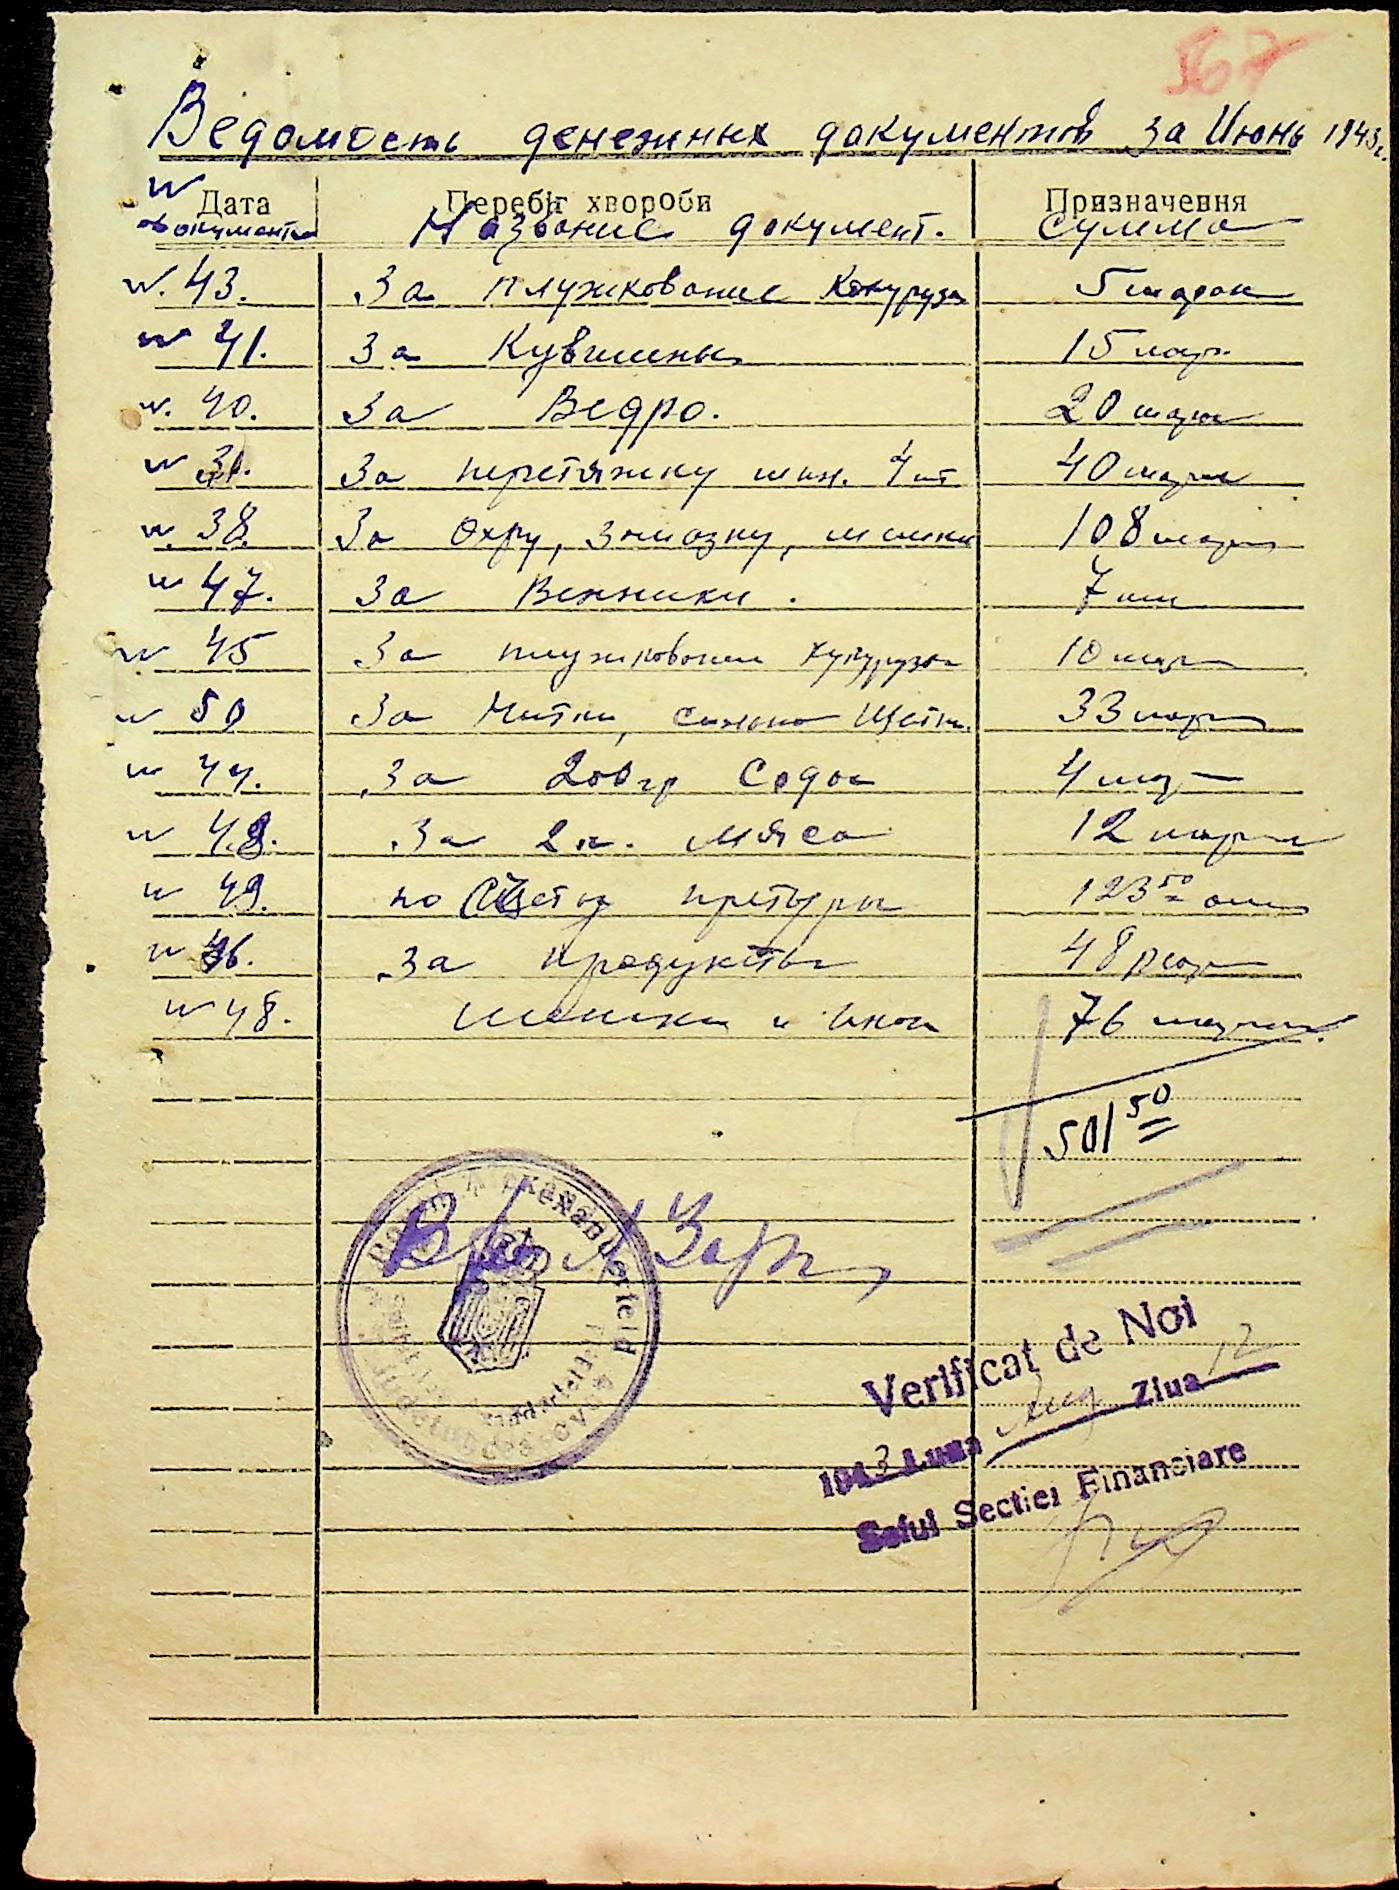 567
Ведомость денежных документов за Июнь 1943г.
№ Дата Перебіг хвороби Призначення
документа Название документ. Сумма
№ 43. За плужкование Кукурузы 5 марок
№ 41. За Кувшины 15 мар.
№ 40. За Ведро. 20 марк
№ 31. За перетяжку шин. 4 шт. 40 марк
№ 38. За Охру, Замазку, 108 марк
№ 47. За Венники. 7 мар
№ 45 За плужкование кукурузы 10 мар
№ 50 За Нитки, Щетки 33 мар
№ 44. За 200 гр Соды 4 мар
№ 42. За 2 к. мяса 12 марк
№ 49. по Счету претуры 123 50
№ 46. За продукты 48 мар
№ 48. 76 марок.
501 50
Alexanderfeld
Verificat de Noi
1943 Luna Aug Ziua 12
Seful Sectiei Financiare